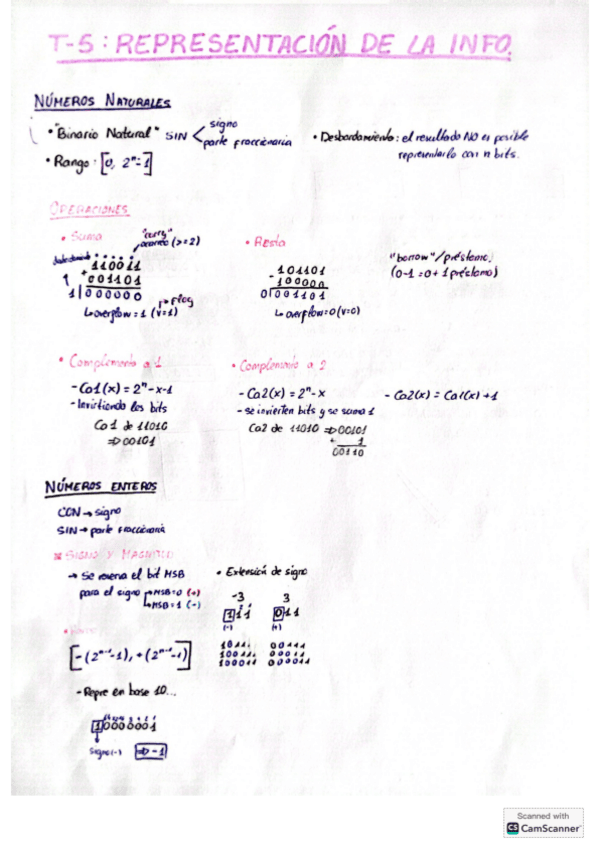 T-5: REPRESENTACIÓN DE LA INFO.
NÚMEROS NATURALES
• "Binario Natural" SIN < signo
parte fraccionaria
• Desbordamiento: el resultado NO es posible
representarlo con n bits.
• Rango: [0, 2ⁿ-1]
OPERACIONES
• Suma
"carry"
acarreo (>=2)
110011
+ 001101
1|000000
↳ overflow=1 (v=1) → Flag
• Resta
101101
- 100000
0|001101
↳ overflow=0 (v=0)
"borrow"/préstamo.
(0-1=0+1 préstamo)
• Complemento a 1
- Ca1(x)=2ⁿ-x-1
- Invirtiendo los bits
Ca1 de 11010
⇒00101
• Complemento a 2
- Ca2(x)=2ⁿ-x
- se invierten bits y se suma 1
Ca2 de 11010 ⇒00101
+ 1
00110
- Ca2(x) = Ca1(x)+1
NÚMEROS ENTEROS
CON → signo
SIN → parte fraccionaria
SIGNO Y MAGNITUD
→ Se reserva el bit MSB
para el signo → MSB=0 (+)
→ MSB=1 (-)
• Extensión de signo
-3
111
(-)
1011
10011
100011
3
011
(+)
0011
00011
000011
• Rango
[-(2ⁿ⁻¹-1), +(2ⁿ⁻¹-1)]
- Repre en base 10...
10000001
signo(-) ⇒ -1
Scanned with
CS CamScanner